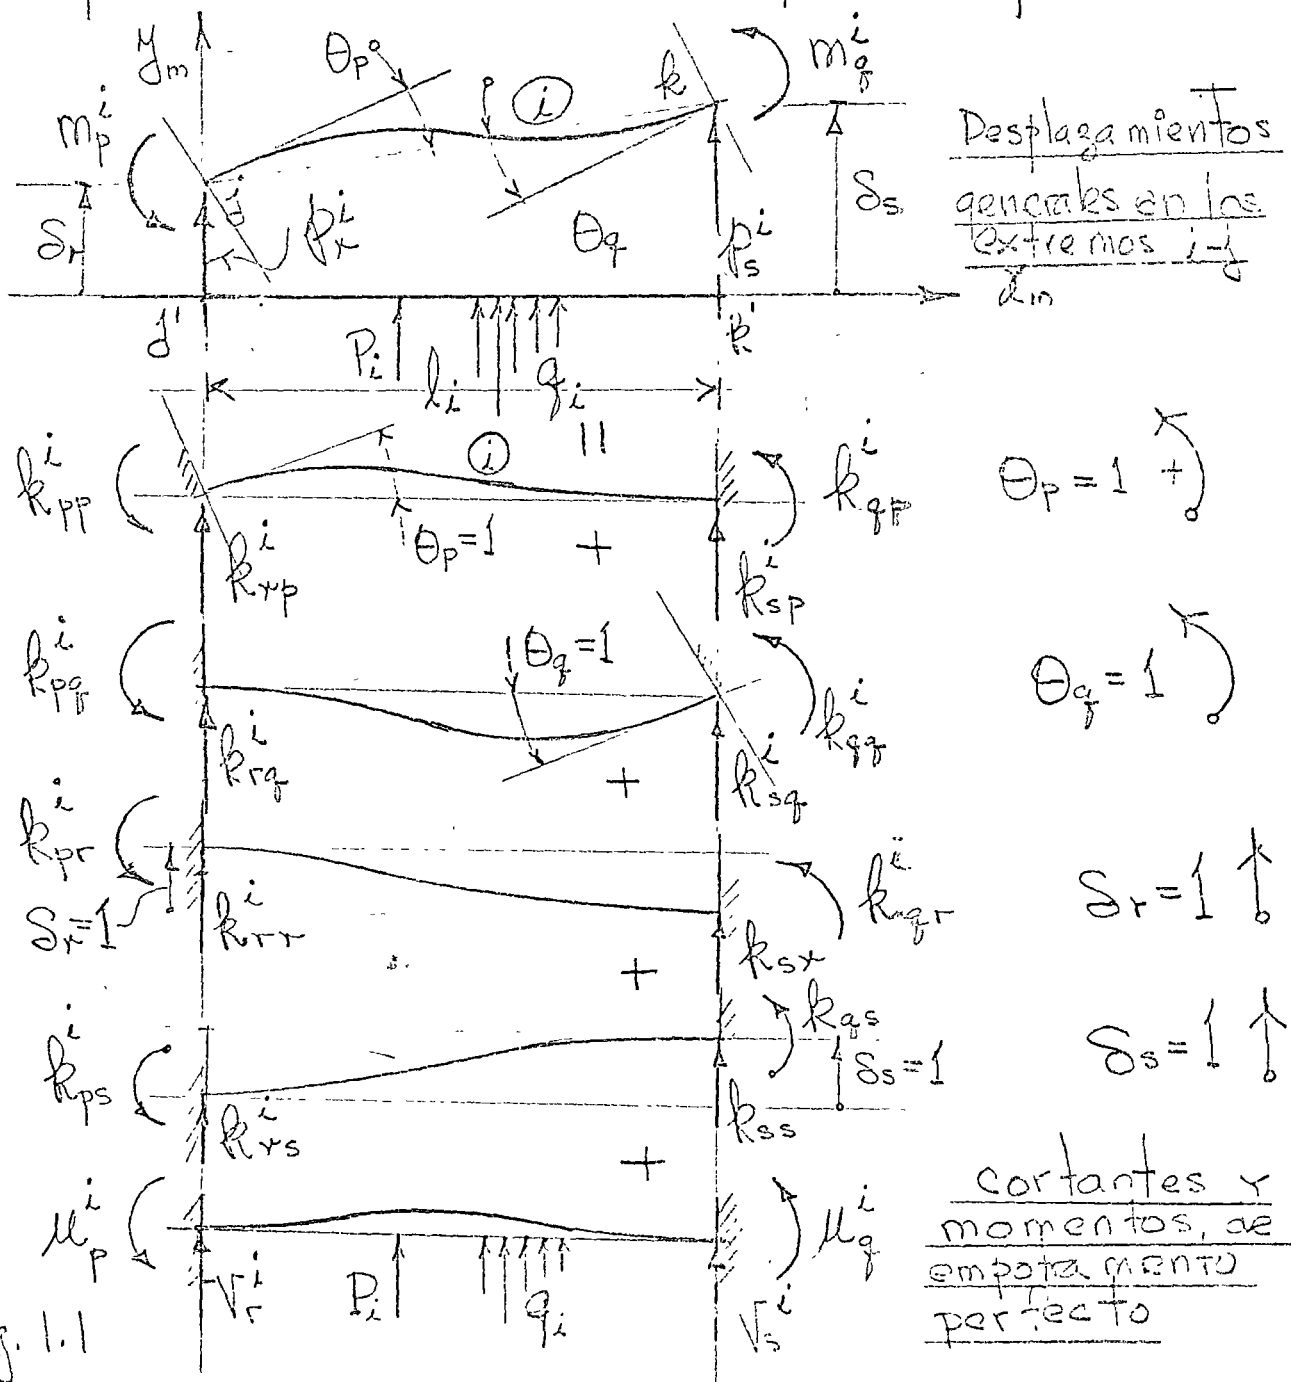 y_m
θ_p
i
k
m_q^i
m_p^i
Desplazamientos
generales en los
extremos i-j
δ_r
p_r^i
θ_q
p_s^i
δ_s
x_m
j'
P_i
l_i
q_i
k'
"
i
k_pp^i
θ_p=1
k_qp^i
θ_p = 1 +
k_rp^i
+
k_sp^i
k_pq^i
θ_q=1
θ_q = 1
k_rq^i
k_qq^i
+
k_sq^i
k_pr^i
k_qr^i
δ_r = 1
δ_r=1
k_rr^i
k_sr
+
k_qs
k_ps^i
δ_s=1
δ_s = 1
k_rs^i
k_ss
+
cortantes y
momentos, de
empotamento
perfecto
μ_p^i
μ_q^i
V_r^i
P_i
q_i
V_s^i
g. 1.1